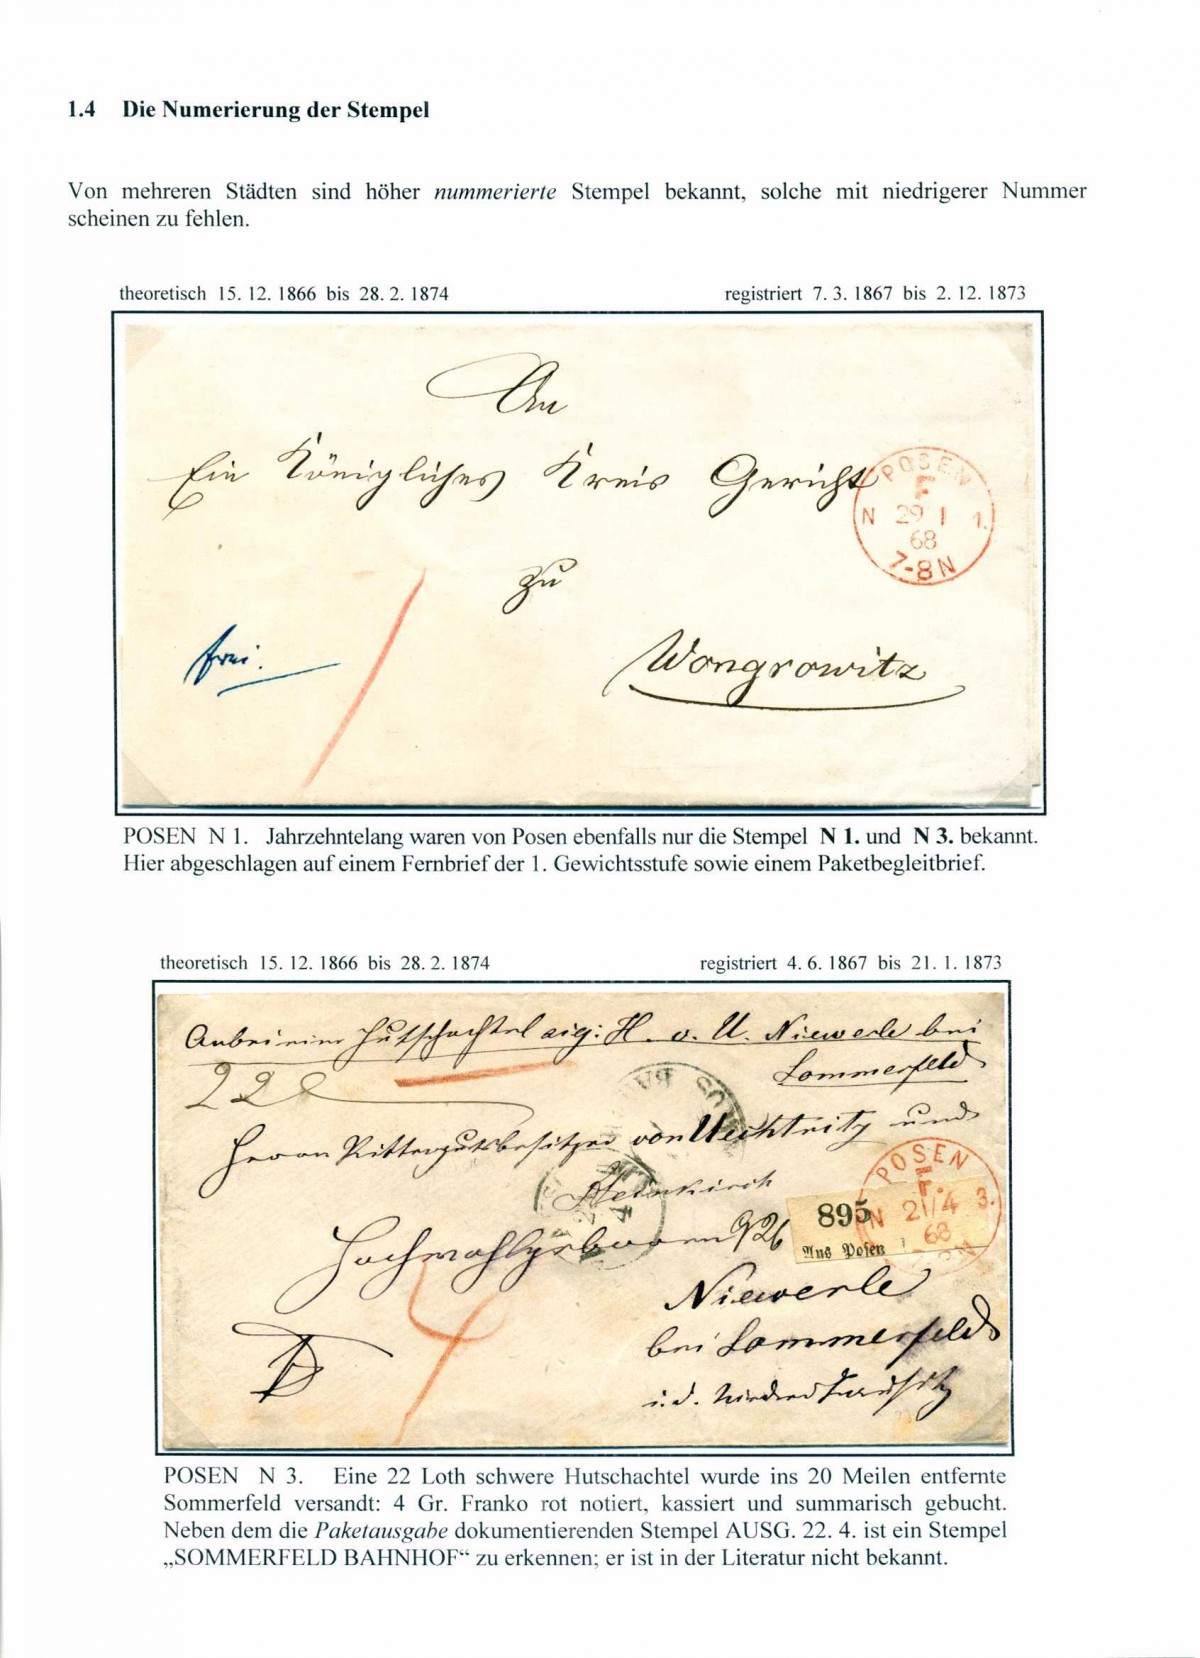 1.4 Die Numerierung der Stempel
Von mehreren Städten sind höher nummerierte Stempel bekannt, solche mit niedrigerer Nummer
scheinen zu fehlen.
theoretisch 15. 12. 1866 bis 28. 2. 1874 registriert 7. 3. 1867 bis 2. 12. 1873
An
Ein Königliches Kreis Gericht
POSEN
F
N 29 1 1.
68
7-8N
zu
frei.
Wongrowitz
POSEN N 1. Jahrzehntelang waren von Posen ebenfalls nur die Stempel N 1. und N 3. bekannt.
Hier abgeschlagen auf einem Fernbrief der 1. Gewichtsstufe sowie einem Paketbegleitbrief.
theoretisch 15. 12. 1866 bis 28. 2. 1874 registriert 4. 6. 1867 bis 21. 1. 1873
Anbei eine Hutschachtel sig: H. v. U. Niewerle bei
Sommerfeld
22
Herrn Rittergutsbesitzer von Uechtritz und
Steinkirch
POSEN
F.
N 21/4 3.
68
895
Aus Posen
Hochwohlgeboren
Niewerle
bei Sommerfeld
i. d. Niederlausitz
4
POSEN N 3. Eine 22 Loth schwere Hutschachtel wurde ins 20 Meilen entfernte
Sommerfeld versandt: 4 Gr. Franko rot notiert, kassiert und summarisch gebucht.
Neben dem die Paketausgabe dokumentierenden Stempel AUSG. 22. 4. ist ein Stempel
„SOMMERFELD BAHNHOF“ zu erkennen; er ist in der Literatur nicht bekannt.